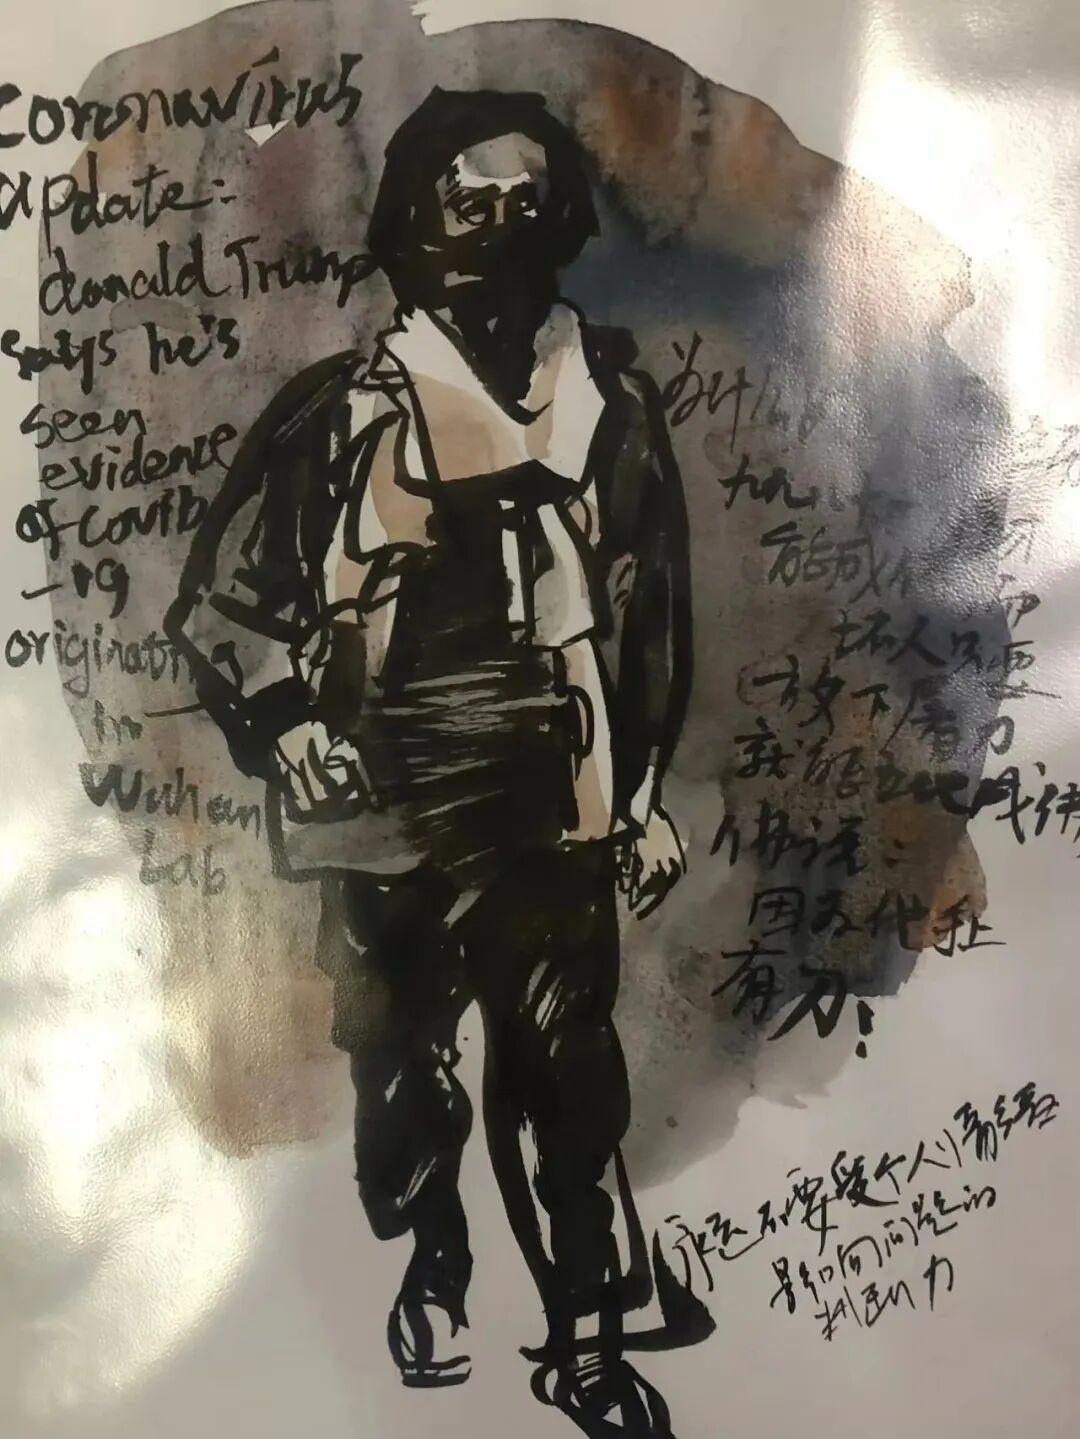 coronavirus
update:
donald Trump
says he's
seen
evidence
of Covid
-19
originating
in
Wuhan
Lab
为什么
能成
坏人只要
放下屠刀
就能立地成佛
佛说:
因为他手上
有刀!
永远不要受个人情绪
影响问题的
判断力